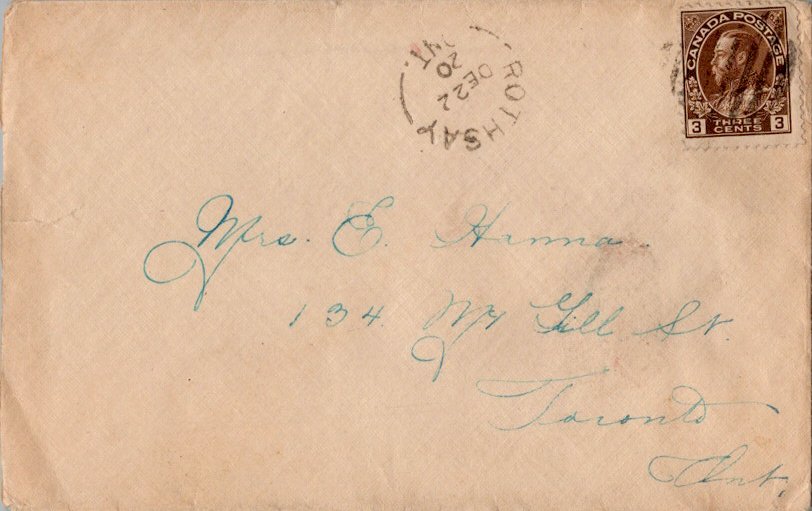 ROTHSAY
DE 22
20
ONT.
CANADA POSTAGE
3 THREE CENTS 3
Mrs. E. Hanna.
134. Mc Gill St.
Toronto
Ont.